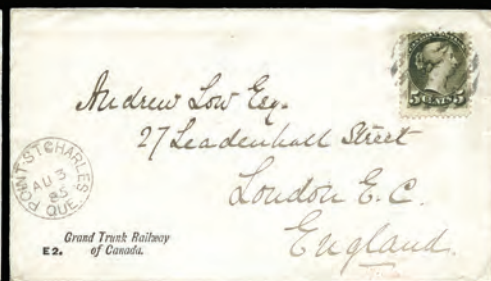 5 CENTS 5
Andrew Low Esq.
27 Leadenhall Street
London E. C.
England.
POINT ST CHARLES
AU 3
85
QUE.
Grand Trunk Railway
E2. of Canada.